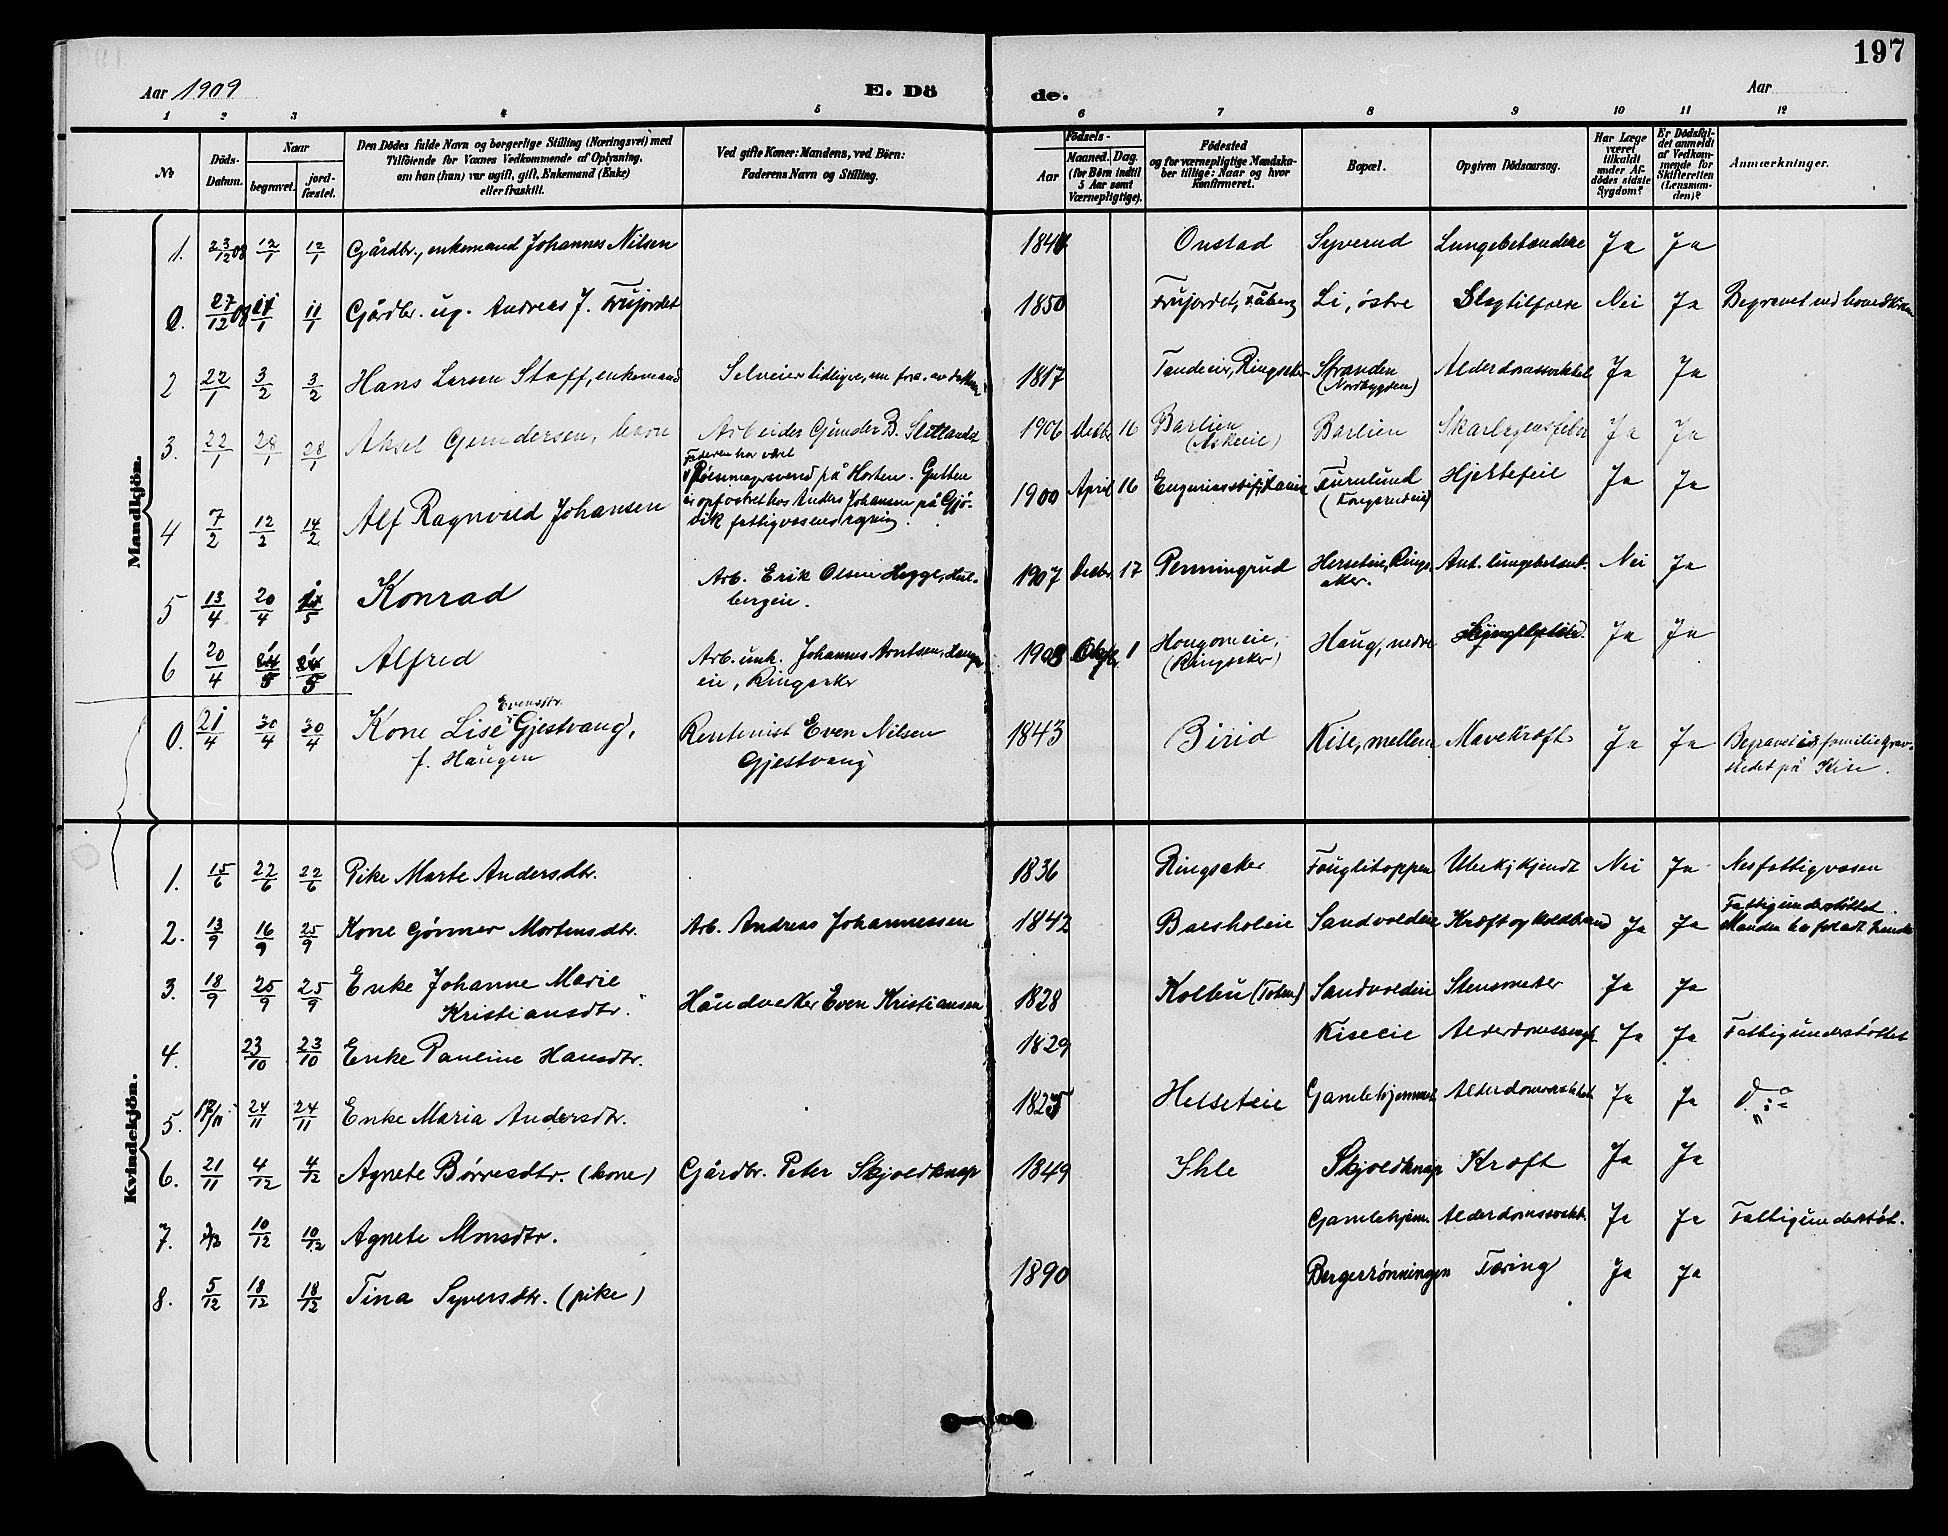 197
Aar 1909 E. Dö de. Aar
1 2 3 4 5 6 7 8 9 10 11 12
№ Döds-Datum. Naar begravet. jord-fæstet. Den Dödes fulde Navn og borgerlige Stilling (Næringsvei) med Tilföiende for Voxnes Vedkommende af Oplysning, om han (hun) var ugift, gift, Enkemand (Enke) eller fraskilt. Ved gifte Koner: Mandens, ved Börn: Faderens Navn og Stilling. Födsels- Aar Maaned. Dag. (for Börn indtil 5 Aar samt Værnepligtige). Födested og for værnepligtige Mandska-ber tillige: Naar og hvor konfirmeret. Bopæl. Opgiven Dödsaarsag. Har Læge været tilkaldt under Af-dödes sidste Sygdom? Er Dödsfal-det anmeldt af Vedkom-mende for Skifteretten (Lensman-den)? Anmærkninger.
Mandkjön.
1. 23/12 08 12/1 12/1 Gårdbr., enkemand Johannes Nilsen 1840 Onstad Syverud Lungebetændelse Ja Ja
0. 27/12 08 11/1 11/1 Gårdbr. ug. Andreas J. Frujordet 1850 Frujordet, Fåberg Li, östre Slagtilfælde Nei Ja Begravet ved hovedkirken
2 22/1 3/2 3/2 Hans Larsen Staff, enkemand Selveier tidligere, nu fors. av datteren 1817 Tandeeie, Ringsaker Stranden (Nordbygden) Alderdomssvakhet Ja Ja
3. 22/1 28/1 28/1 Aksel Gundersen, barn Arbeider Gunder B. 1906 Decbr 16 Barlien (Askeeie) Barlien Skarlagensfeber Ja Ja
4 7/2 12/2 14/2 Alf Ragnvald Johansen Faderen har været
svend på Horten. Gutten
er opfostret hos Anders Johansen på Gjö-
vik fattigvæsens regning. 1900 April 16 Furulund Hjertefeil Ja Ja
5 13/4 20/4 Konrad Arb. Erik Olsen Hegge, Hel-
bergeie. 1907 Decbr. 17 Penningrud Herseteie, Rings-
aker. Ant. lungebetænd. Nei Ja
6 20/4 Alfred Arb. unk. Johannes Arntsen, Haug-
eie, Ringsaker 1908 1 Hougomeie, (Ringsaker) Haug, nedre Ja Ja
0. 21/4 30/4 30/4 Kone Lise Evensdtr. Gjestvang,
f. Haugen Rentenist Even Nilsen
Gjestvang 1843 Birid Kise, mellem Mavekræft Ja Ja Begravet i familiegrav-
stedet på Kise.
Kvindekjön.
1. 15/6 22/6 22/6 Pike Marte Andersdtr. 1836 Ringsaker Fauglitoppen Ubekjendt Nei Ja Nes fattigvæsen
2. 13/9 16/9 25/9 Kone Gönner Mortensdtr. Arb. Andreas Johannessen 1842 Baesholeie Sandvoldeie Kræft og koldbrand Ja Ja Fattigunderstöttet.
Manden har forladt hende
3. 18/9 25/9 25/9 Enke Johanne Marie
Kristiansdtr. Håndverker Even Kristiansen 1828 Kolbu (Toten) Sandvoldeie Stensmerter Ja Ja
4. 23/10 23/10 Enke Pauline Hansdtr. 1829 Kiseeie Alderdomssvagh. Ja Ja Fattigunderstöttet
5. 17/11 24/11 24/11 Enke Maria Andersdtr. 1825 Helseteie Gamlehjemmet Alderdomssvakhet Ja Ja D:o
6. 21/11 4/12 4/12 Agnete Börresdtr. (kone) Gårdbr. Peter Skjoldknap 1849 Ihle Skjoldknap Kræft Ja Ja
7. 2/12 10/12 10/12 Agnete Monsdtr. Gamlehjem. Alderdomssvakh. Ja Ja Fattigunderstöt.
8. 5/12 18/12 18/12 Tina Syversdtr. (pike) 1890 Bergerrönningen Tæring Ja Ja